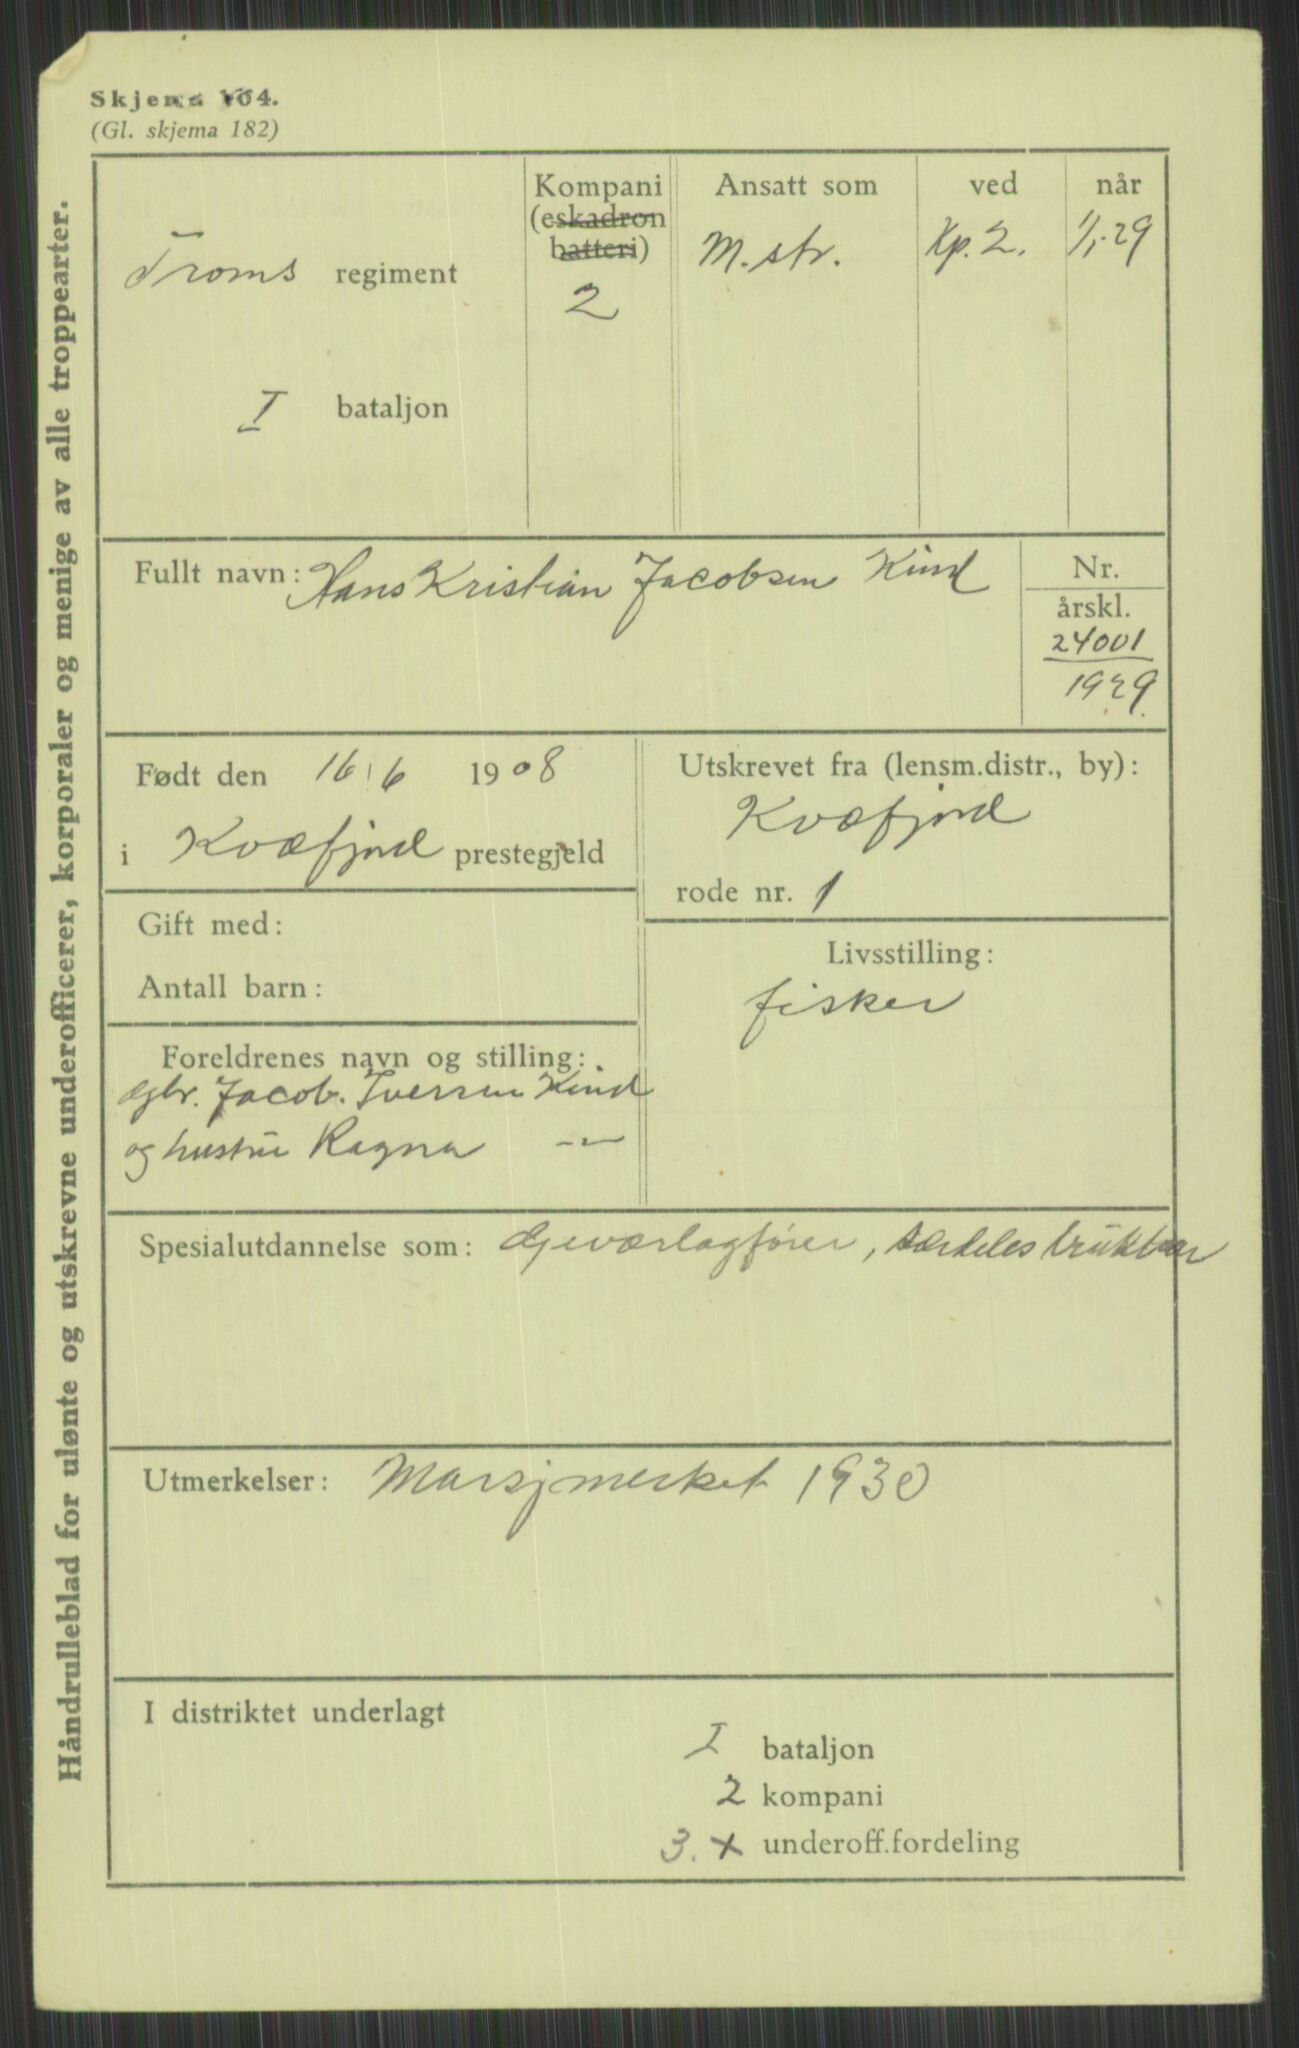 Skjema 104.
(Gl. skjema 182)
Håndrulleblad for ulønte og utskrevne underofficerer, korporaler og menige av alle troppearter.
Troms regiment
I bataljon
Kompani
(eskadron
batteri)
2
Ansatt som
M. str.
ved
Kp. 2.
når
1/1-29
Fullt navn: Hans Kristian Jacobsen Kind
Nr.
årskl.
24001
1929
Født den 16/6 1908
i Kvæfjord prestegjeld
Utskrevet fra (lensm.distr., by):
Kvæfjord
rode nr. 1
Gift med:
Antall barn:
Livsstilling:
fisker
Foreldrenes navn og stilling:
Jacob. Iversen Kind
og hustru Ragna -"-
Spesialutdannelse som: Geværlagfører, særdeles brukbar
Utmerkelser: Marsjmerket 1930
I distriktet underlagt
I bataljon
2 kompani
3. x underoff.fordeling